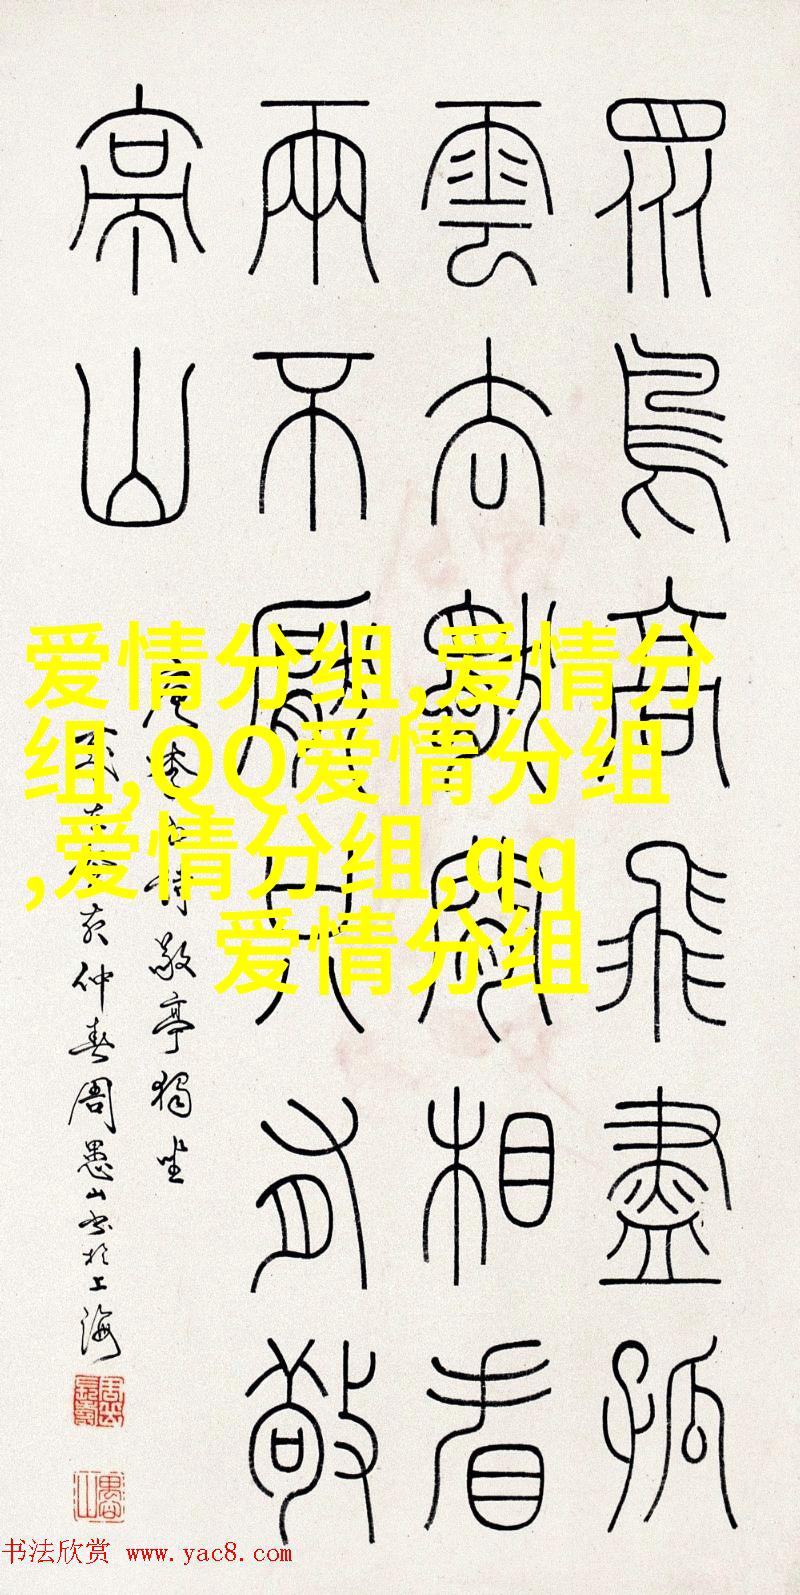 眾鳥高飛盡孤
雲去獨閒相看
兩不厭只有敬
亭山
詩敬亭獨坐
仲春周愚山書於上海
爱情分组,爱情分
组,QQ爱情分组
,爱情分组,qq
爱情分组
书法欣赏 www.yac8.com